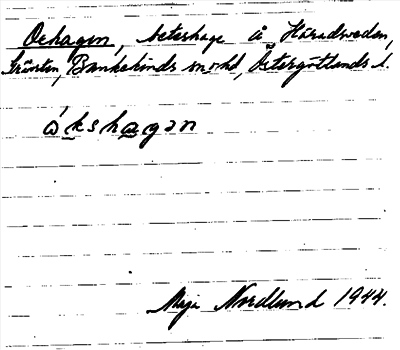 Oxhagen, beteshage å Häradsveden,
Grönsten, Bankekinds sn o hd, Östergötlands l.
ókshagan
Maja Nordlund 1944.